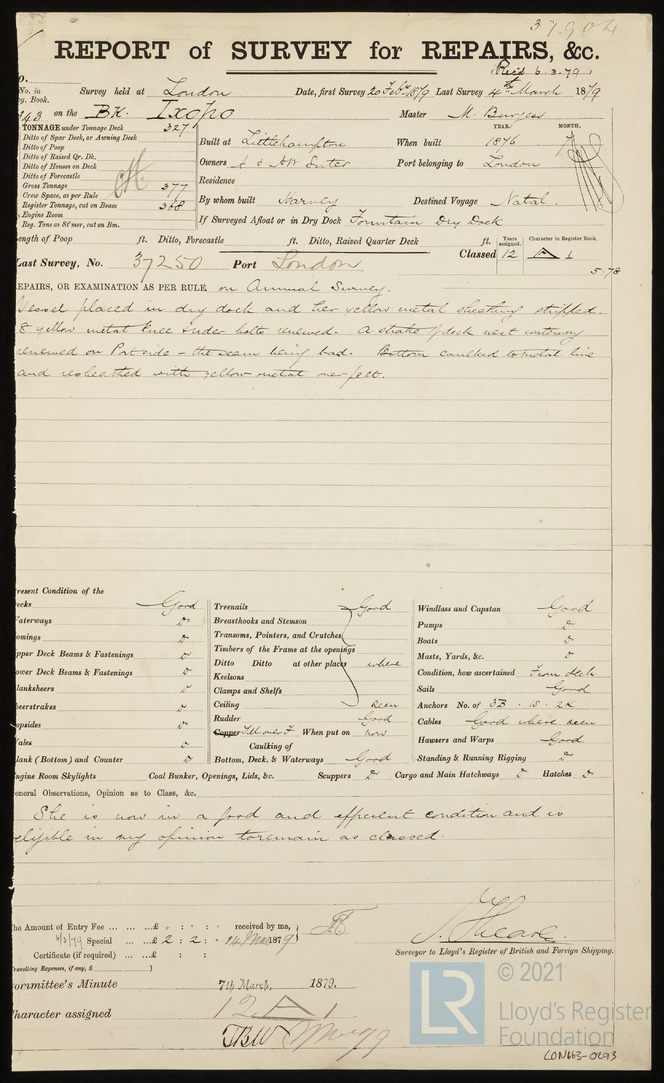 37904
REPORT of SURVEY for REPAIRS, &c.
Rec'd 6.3.79
No. in Survey held at London Date, first Survey 20 Feby 1879 Last Survey 4th March 1879
g. Book.
243 on the Bk. Ixopo Master M. Burgess
TONNAGE under Tonnage Deck 327
Ditto of Spar Deck, or Awning Deck
Ditto of Poop
Ditto of Raised Qr. Dk.
Ditto of Houses on Deck
Ditto of Forecastle
Gross Tonnage 377
Crew Space, as per Rule
Register Tonnage, cut on Beam 368
Engine Room
Reg. Tons as St'mer, cut on Bm.
YEAR. MONTH.
Built at Littlehampton When built 1876 7
Owners Port belonging to London
Residence
By whom built Harvey Destined Voyage Natal.
If Surveyed Afloat or in Dry Dock Fountain Dry Dock
ength of Poop ft. Ditto, Forecastle ft. Ditto, Raised Quarter Deck ft.
Classed Years assigned. 12 Character in Register Book. A 1
5-78
Last Survey, No. 37250 Port London
EPAIRS, OR EXAMINATION AS PER RULE, on Annual Survey.
Vessel placed in dry dock and her yellow metal sheathing stripped.
8 yellow metal Knee & rider bolts renewed. A strake of deck next waterway
renewed on Port side - the seam being bad. Bottom caulked to metal line
and resheathed with yellow metal over felt.
resent Condition of the
ecks Good
aterways Do
omings Do
pper Deck Beams & Fastenings Do
ower Deck Beams & Fastenings Do
lanksheers Do
heerstrakes Do
opsides Do
ales Do
lank (Bottom) and Counter Do
Treenails Good
Breasthooks and Stemson
Transoms, Pointers, and Crutches
Timbers of the Frame at the openings
Ditto Ditto at other places where
Keelsons
Clamps and Shelfs
Ceiling seen
Rudder Good
Copper When put on now
Caulking of
Bottom, Deck, & Waterways Good
Windlass and Capstan Good
Pumps Do
Boats Do
Masts, Yards, &c. Do
Condition, how ascertained From deck
Sails Good
Anchors No. of 3B. 1S. 2K
Cables Good where seen
Hawsers and Warps Good
Standing & Running Rigging Do
ngine Room Skylights Coal Bunker, Openings, Lids, &c. Scuppers Do Cargo and Main Hatchways Do Hatches Do
eneral Observations, Opinion as to Class, &c.
She is now in a good and efficient condition and is
eligible in my opinion to remain as classed.
he Amount of Entry Fee ... ... ...£ : : received by me,
6/3/79 Special ... ...£ 2 : 2 : 14 Mar 1879
Certificate (if required) ... ...£ : :
ravelling Expenses, if any, £ )
Surveyor to Lloyd's Register of British and Foreign Shipping.
ommittee's Minute 7th March, 1879.
haracter assigned 12 A 1
TBW
LR
© 2021
Lloyd's Register
Foundation
LON663-0293